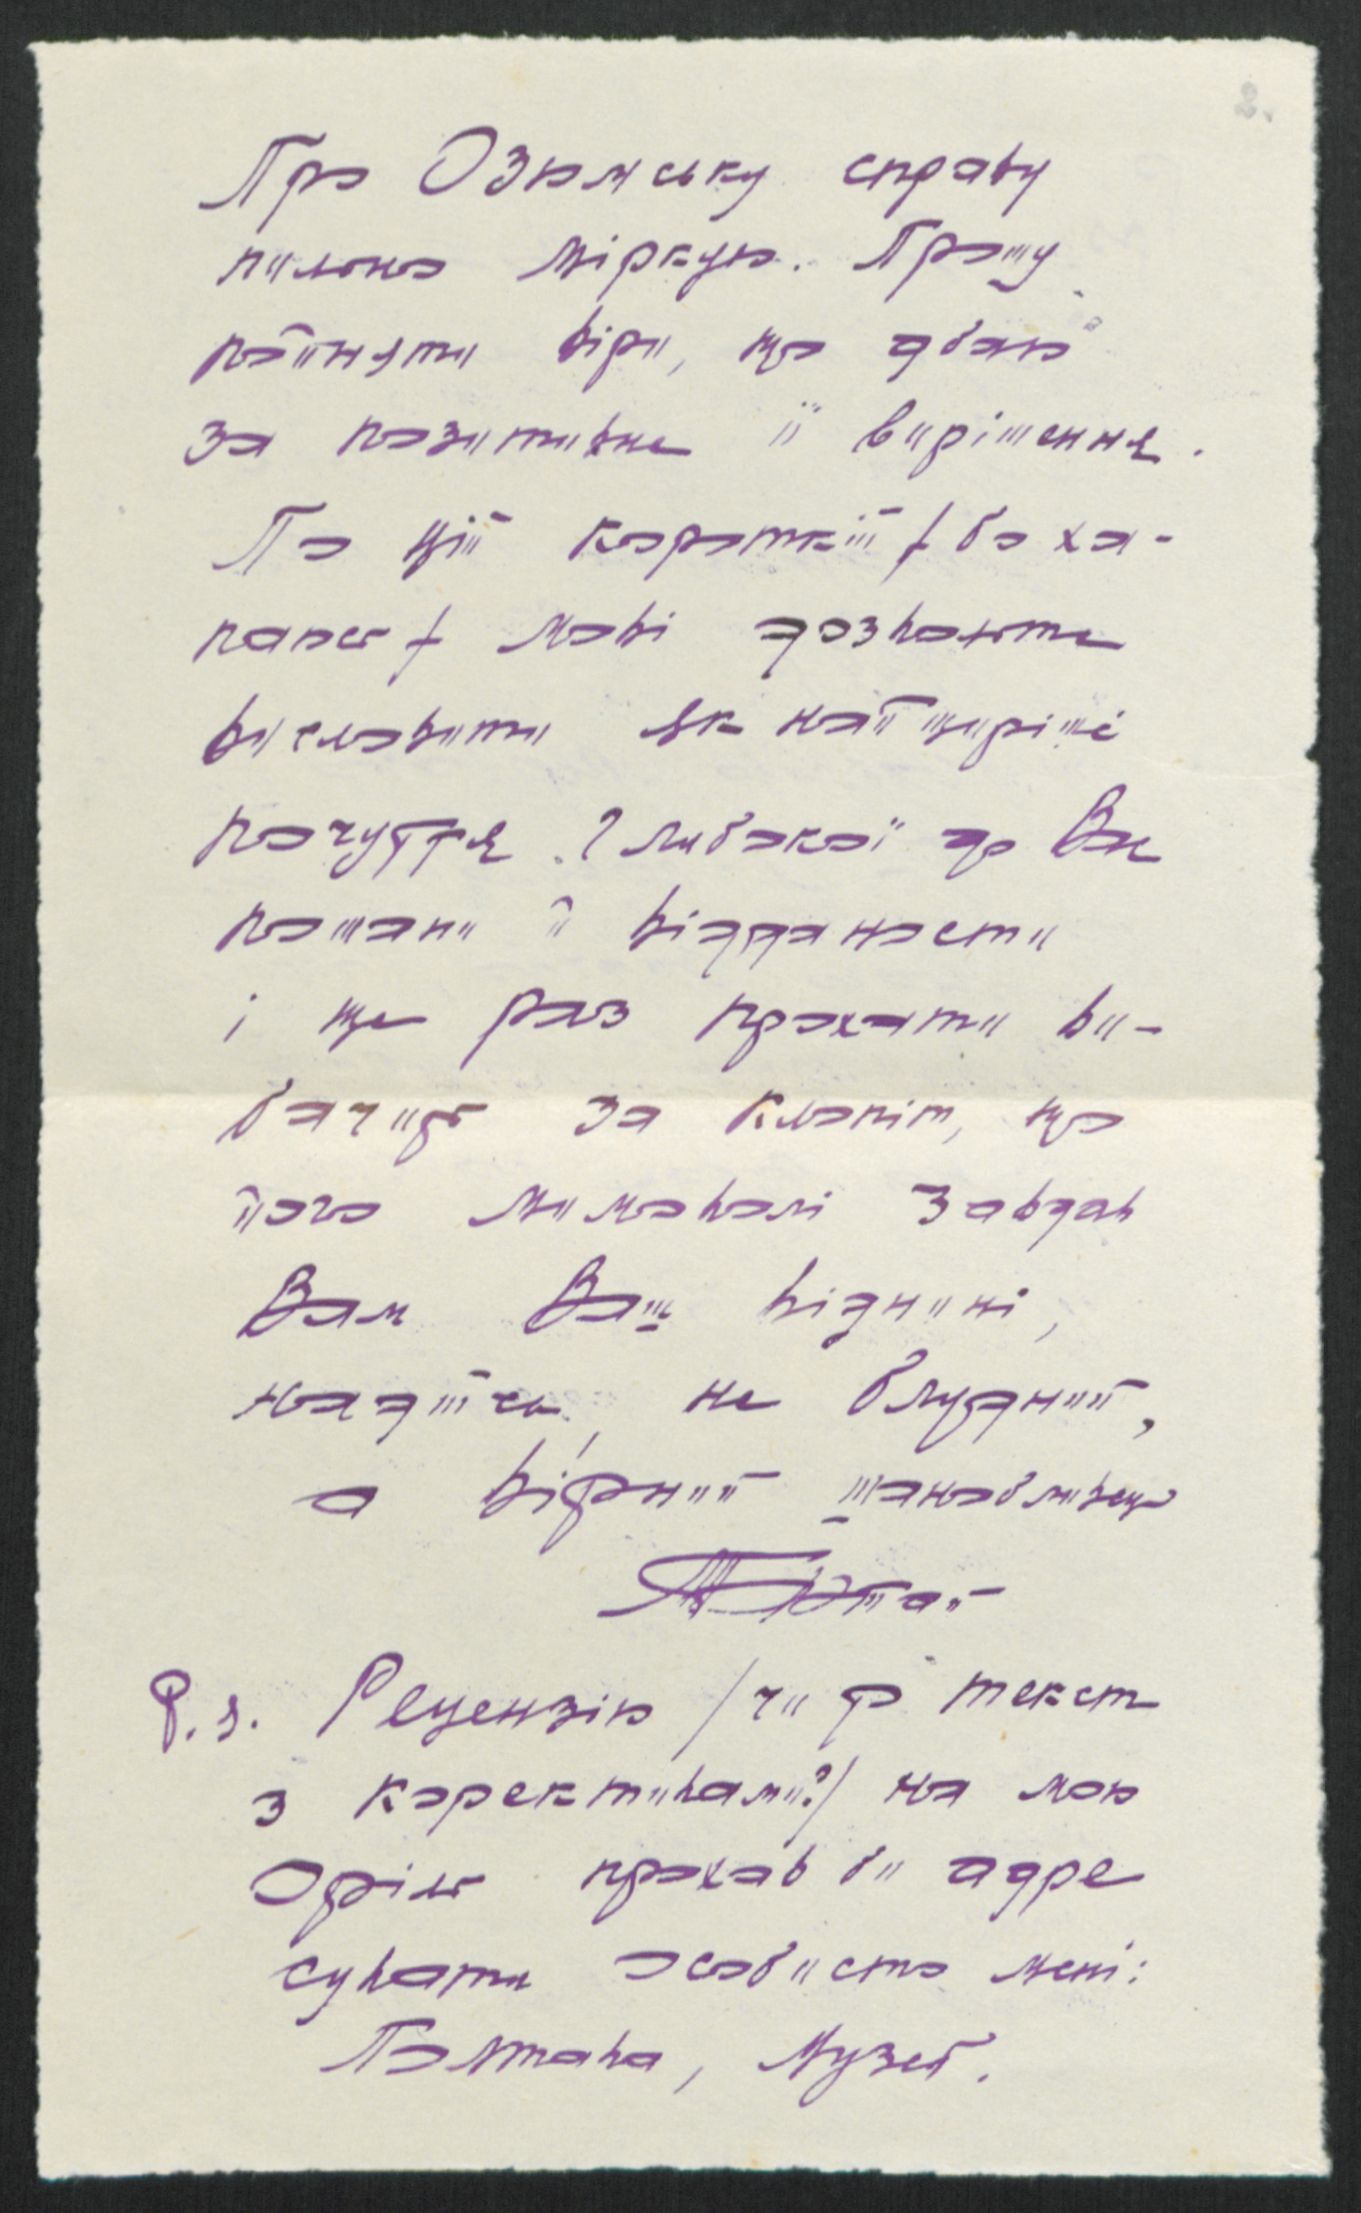 2.
Про Озюмську справу
пильно міркую. Прошу
пойняти віри, що дбаю
за позитивне її вирішення.
По цій короткій /бо ха-
паюсь/ мові дозвольте
висловити як найщиріші
почуття глибокої до Вас
пошани й відданости
і ще раз прохати ви-
бачить за клопіт, що
його мимоволі завдав
Вам Ваш відчині,
надійсь, не блудний,
а вірний шановливець
P.s. Рецензію /чи то текст
з корективами?/ на мою
Оріль прохав би адре
сувати особисто мені:
Полтава, Музей.